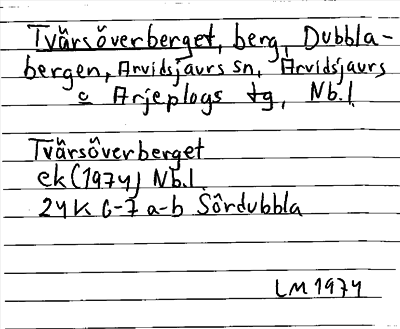 Tvärsöverberget, berg, Dubbla-
bergen, Arvidsjaurs sn, Arvidsjaurs
o Arjeplogs tg, Nb.l.
Tvärsöverberget
ek (1974) Nb.l.
24K 6-7 a-b Sördubbla
LM 1974